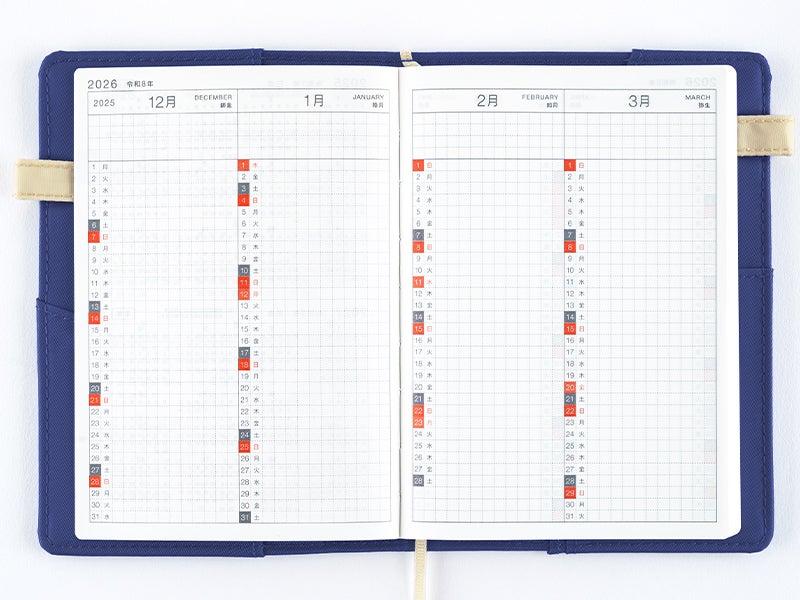 2026 令和8年
2025 12月 DECEMBER 師走
1 月
2 火
3 水
4 木
5 金
6 土
7 日
8 月
9 火
10 水
11 木
12 金
13 土
14 日
15 月
16 火
17 水
18 木
19 金
20 土
21 日
22 月
23 火
24 水
25 木
26 金
27 土
28 日
29 月
30 火
31 水
1月 JANUARY 睦月
1 木
2 金
3 土
4 日
5 月
6 火
7 水
8 木
9 金
10 土
11 日
12 月
13 火
14 水
15 木
16 金
17 土
18 日
19 月
20 火
21 水
22 木
23 金
24 土
25 日
26 月
27 火
28 水
29 木
30 金
31 土
2月 FEBRUARY 如月
1 日
2 月
3 火
4 水
5 木
6 金
7 土
8 日
9 月
10 火
11 水
12 木
13 金
14 土
15 日
16 月
17 火
18 水
19 木
20 金
21 土
22 日
23 月
24 火
25 水
26 木
27 金
28 土
3月 MARCH 弥生
1 日
2 月
3 火
4 水
5 木
6 金
7 土
8 日
9 月
10 火
11 水
12 木
13 金
14 土
15 日
16 月
17 火
18 水
19 木
20 金
21 土
22 日
23 月
24 火
25 水
26 木
27 金
28 土
29 日
30 月
31 火